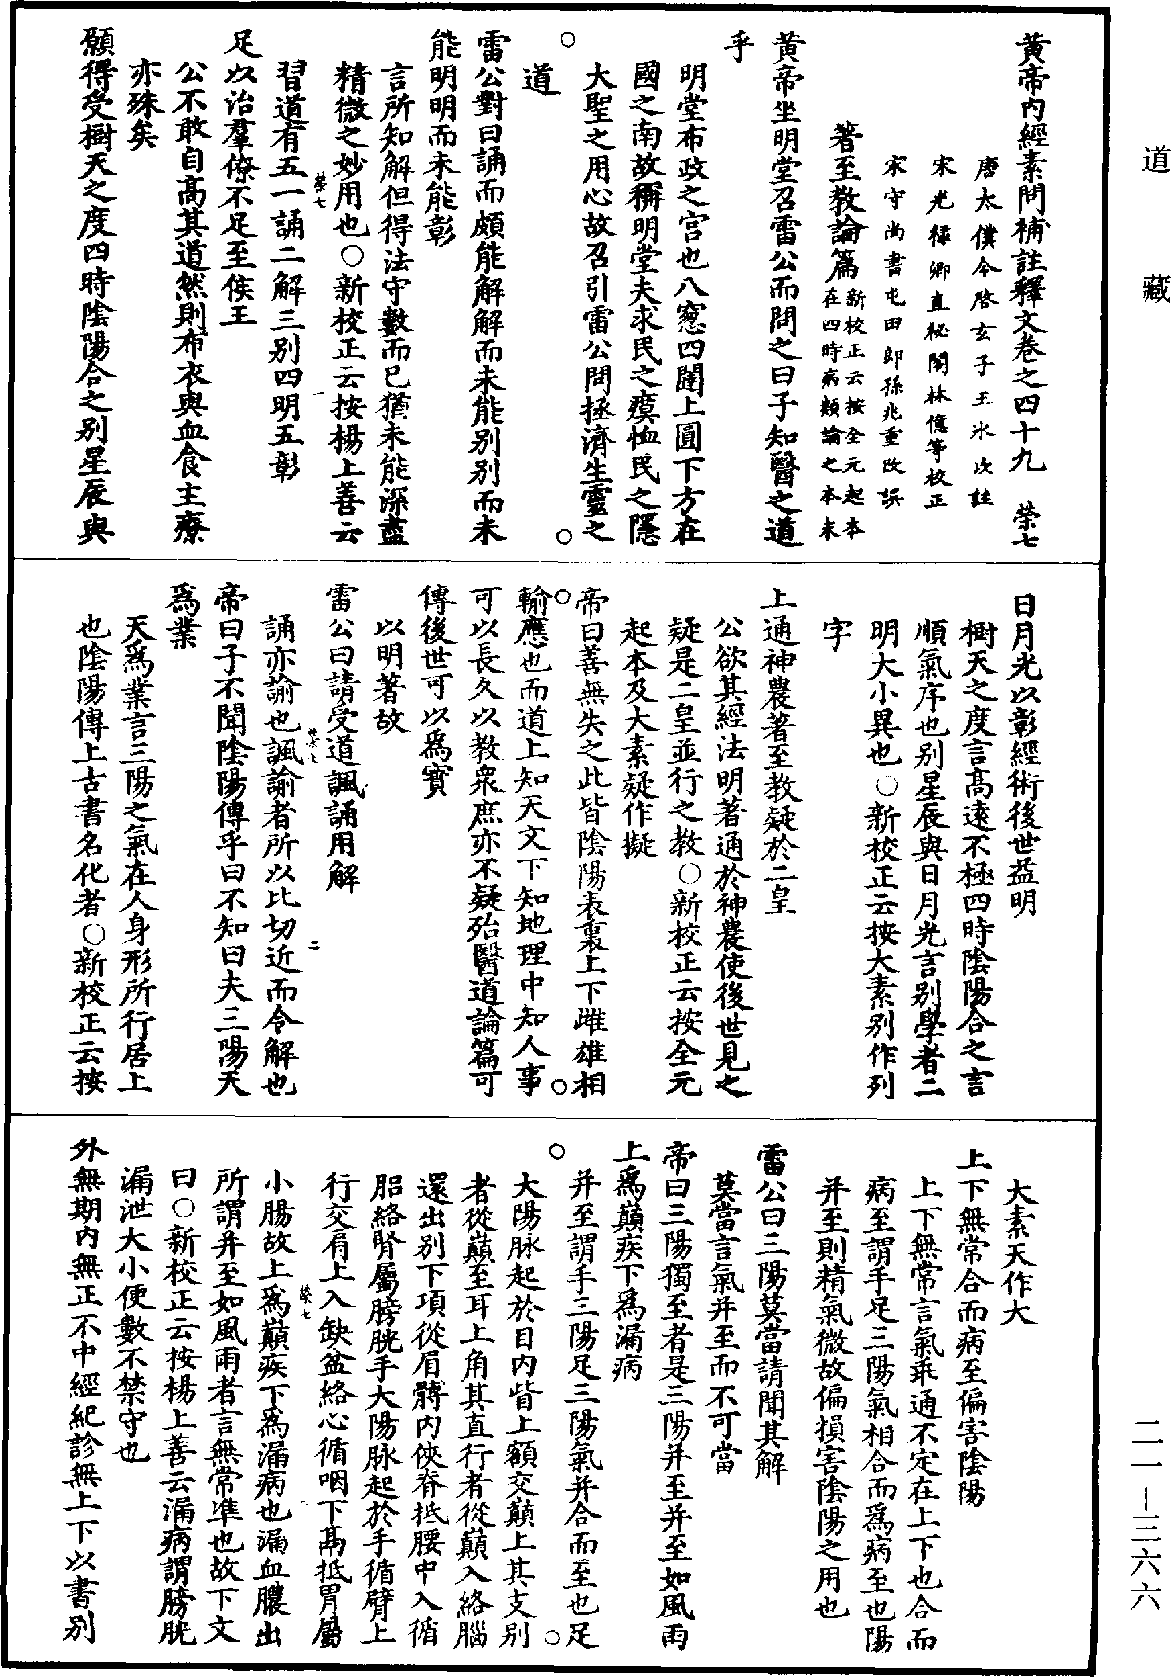 道藏
黃帝內經素問補註釋文卷之四十九 榮七
唐太僕令啓玄子王冰次註
宋光祿卿直秘閣林億等校正
宋守尚書屯田郎孫兆重改誤
著至教論篇新校正云按全元起本在四時病類論之本末
黃帝坐明堂召雷公而問之曰子知醫之道
乎
明堂布政之宮也八窓四闥上圓下方在
國之南故稱明堂夫求民之瘼恤民之隱
大聖之用心故召引雷公問拯濟生靈之
道
雷公對曰誦而頗能解解而未能別別而未
能明明而未能彰
言所知解但得法守數而已猶未能深盡
精微之妙用也○新校正云按楊上善云
習道有五一誦二解三別四明五彰
足以治羣僚不足至侯王
公不敢自高其道然則布衣與血食主療
亦殊矣
願得受樹天之度四時陰陽合之別星辰與
日月光以彰經術後世益明
樹天之度言高遠不極四時陰陽合之言
順氣序也別星辰與日月光言別學者二
明大小異也○新校正云按大素別作列
字
上通神農著至教疑於二皇
公欲其經法明著通於神農使後世見之
疑是二皇並行之教○新校正云按全元
起本及大素疑作擬
帝曰善無失之此皆陰陽表裏上下雌雄相
輸應也而道上知天文下知地理中知人事
可以長久以教衆庶亦不疑殆醫道論篇可
傳後世可以爲寶
以明著故
雷公曰請受道諷誦用解
誦亦諭也諷諭者所以比切近而令解也
帝曰子不聞陰陽傳乎曰不知曰夫三陽天
爲業
天爲業言三陽之氣在人身形所行居上
也陰陽傳上古書名化者○新校正云按
大素天作大
上下無常合而病至偏害陰陽
上下無常言氣乖通不定在上下也合而
病至謂手足三陽氣相合而爲病至也陽
并至則精氣微故偏損害陰陽之用也
雷公曰三陽莫當請聞其解
莫當言氣并至而不可當
帝曰三陽獨至者是三陽并至并至如風雨
上爲巔疾下爲漏病
并至謂手三陽足三陽氣并合而至也足
大陽脉起於目內眥上額交巔上其支別
者從巔至耳上角其直行者從巔入絡腦
還出別下項從肩髆內俠脊抵腰中入循
膂絡腎屬膀胱手大陽脉起於手循臂上
行交肩上入缺盆絡心循咽下鬲抵胃屬
小腸故上爲巔疾下爲漏病也漏血膿出
所謂并至如風雨者言無常準也故下文
曰○新校正云按楊上善云漏病謂膀胱
漏泄大小便數不禁守也
外無期內無正不中經紀診無上下以書別
二一—三六六